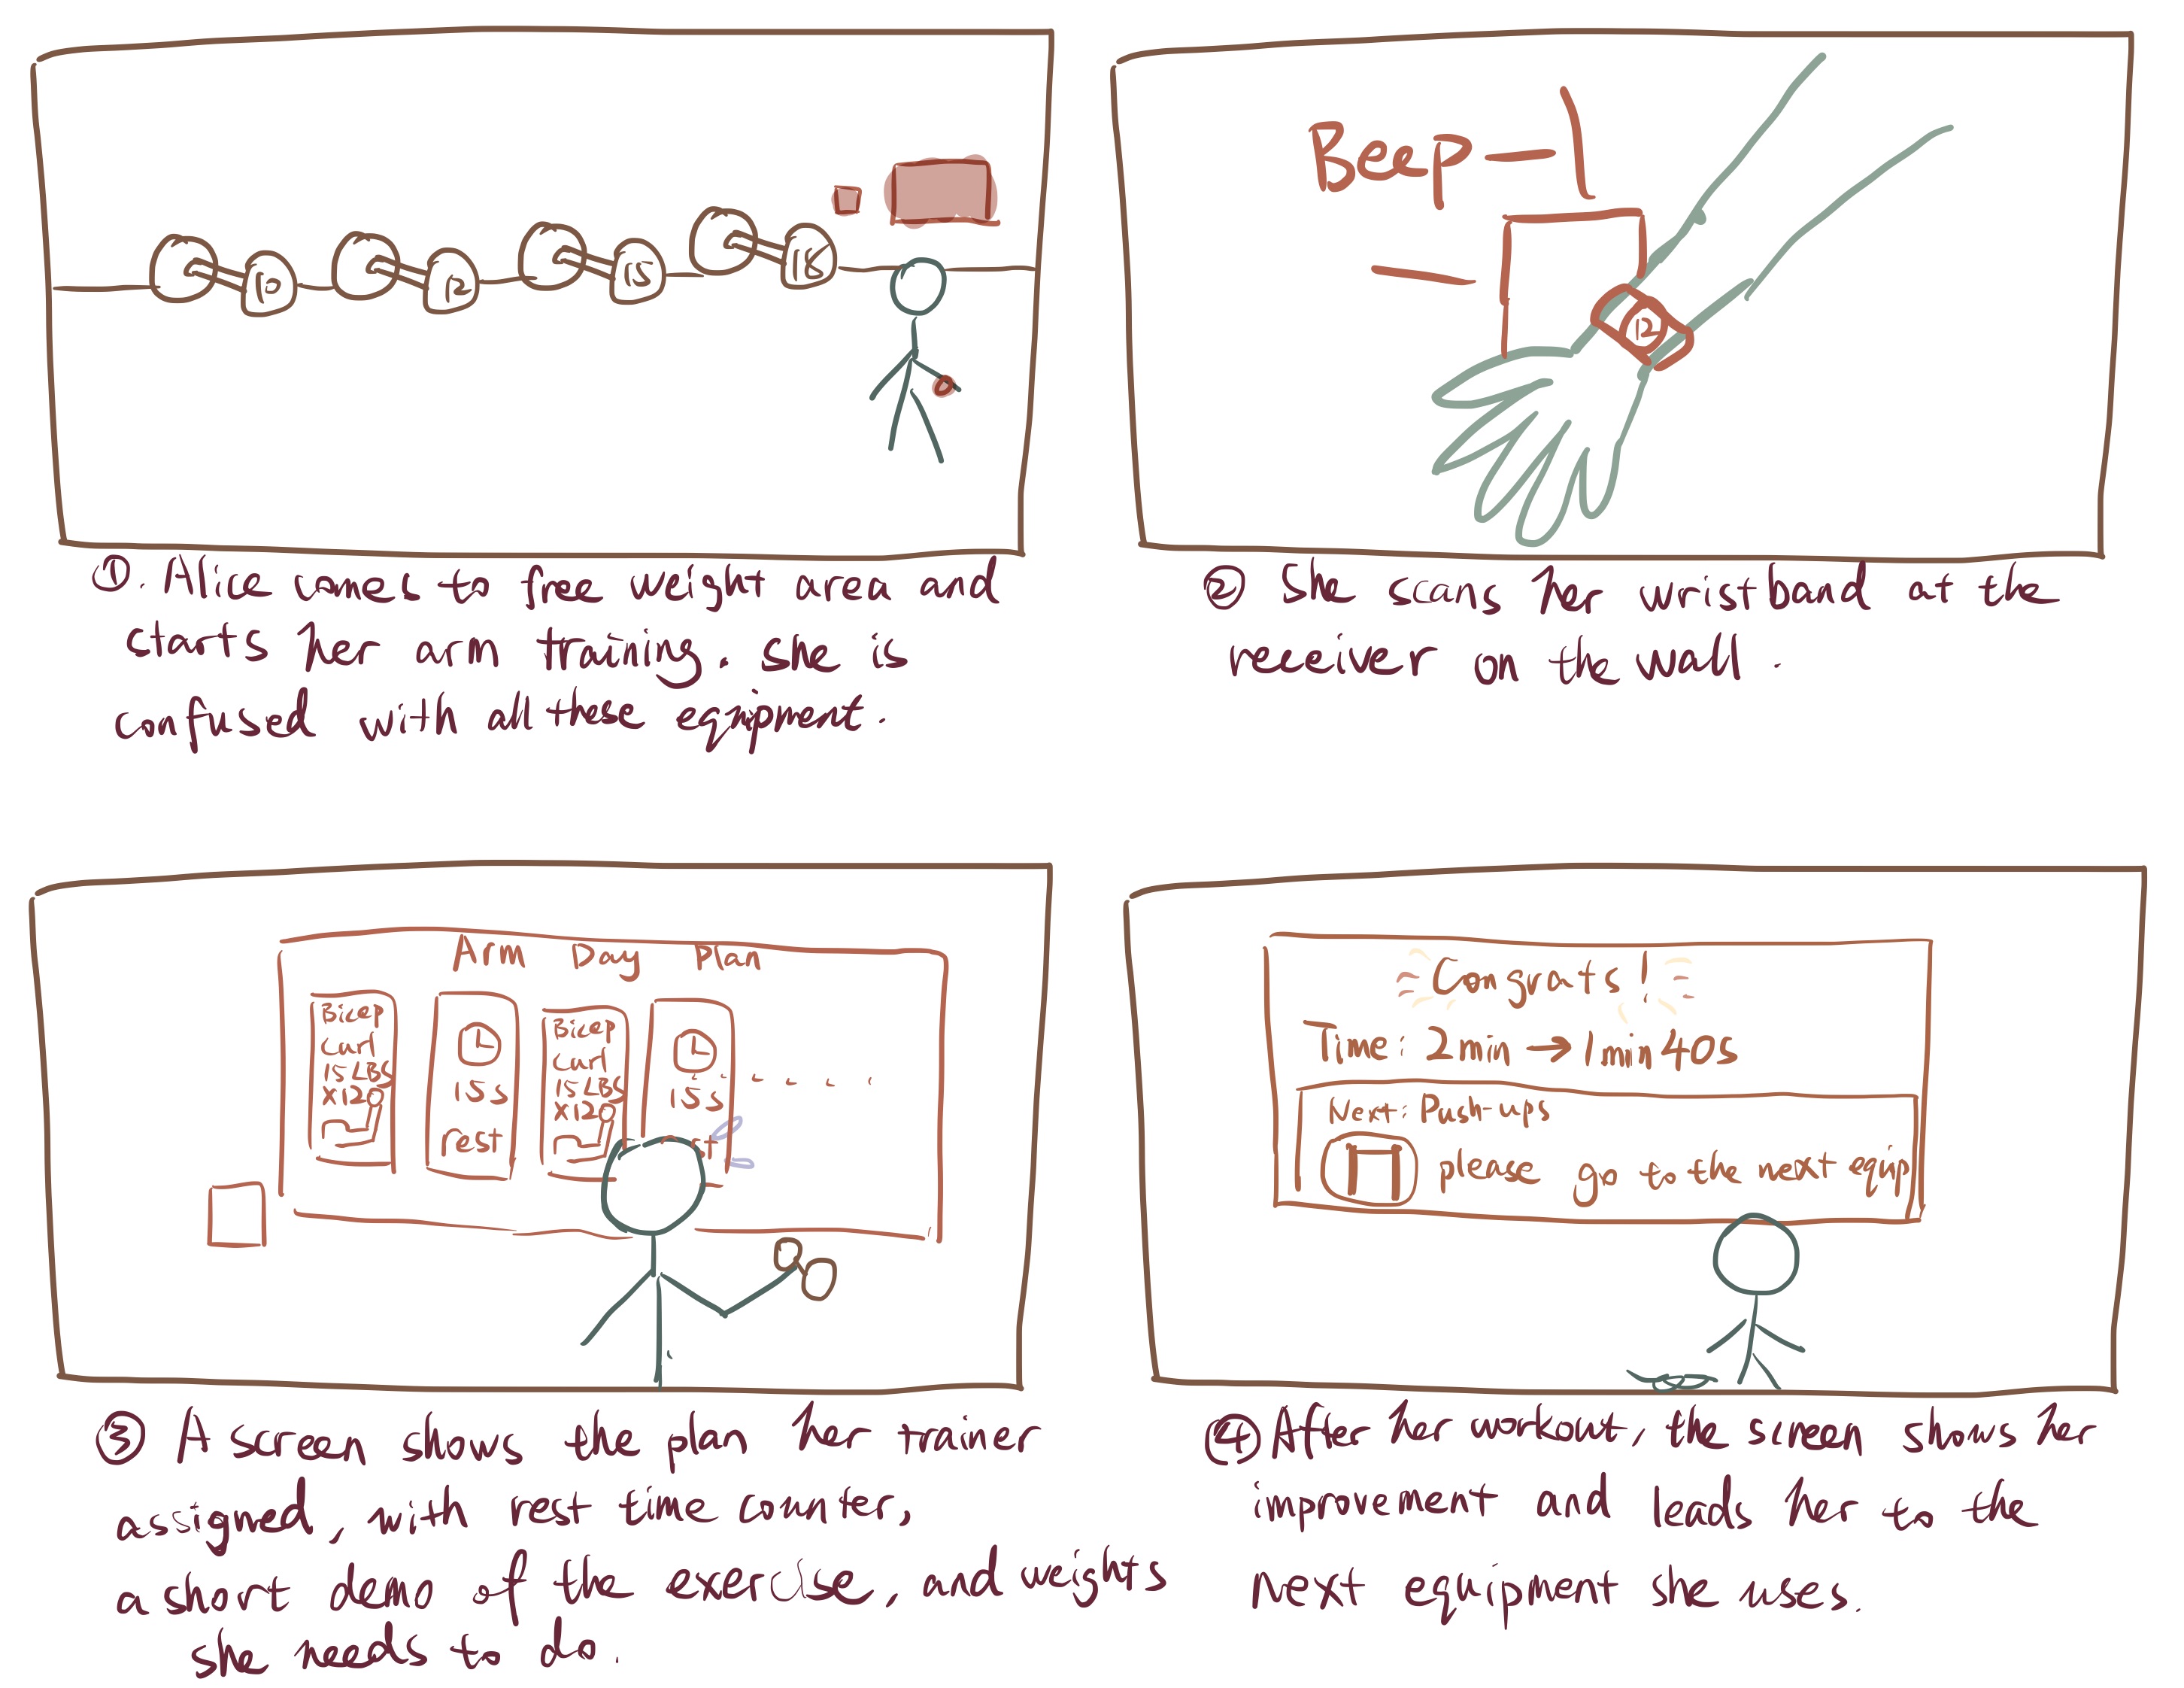 10
12
15
18
①. Alice comes to free weight area and
starts her arm training. she is
confused with all these equipment.
Beep
12
② She scans her wristband at the
receiver on the wall.
Arm Day Plan
Bicep
Curl
15LBS
x12
15s
rest
Bicep
Curl
15LBS
x12
15s
③ A screen shows the plan her trainer
assigned, with rest time counter,
a short demo of the exercise, and weights
she needs to do.
Congrats!
Time: 2min → 1min 40s
Next: Push-ups
please go to the next equip
④ After her workout, the screen shows her
improvement and leads her to the
next equipment she uses.